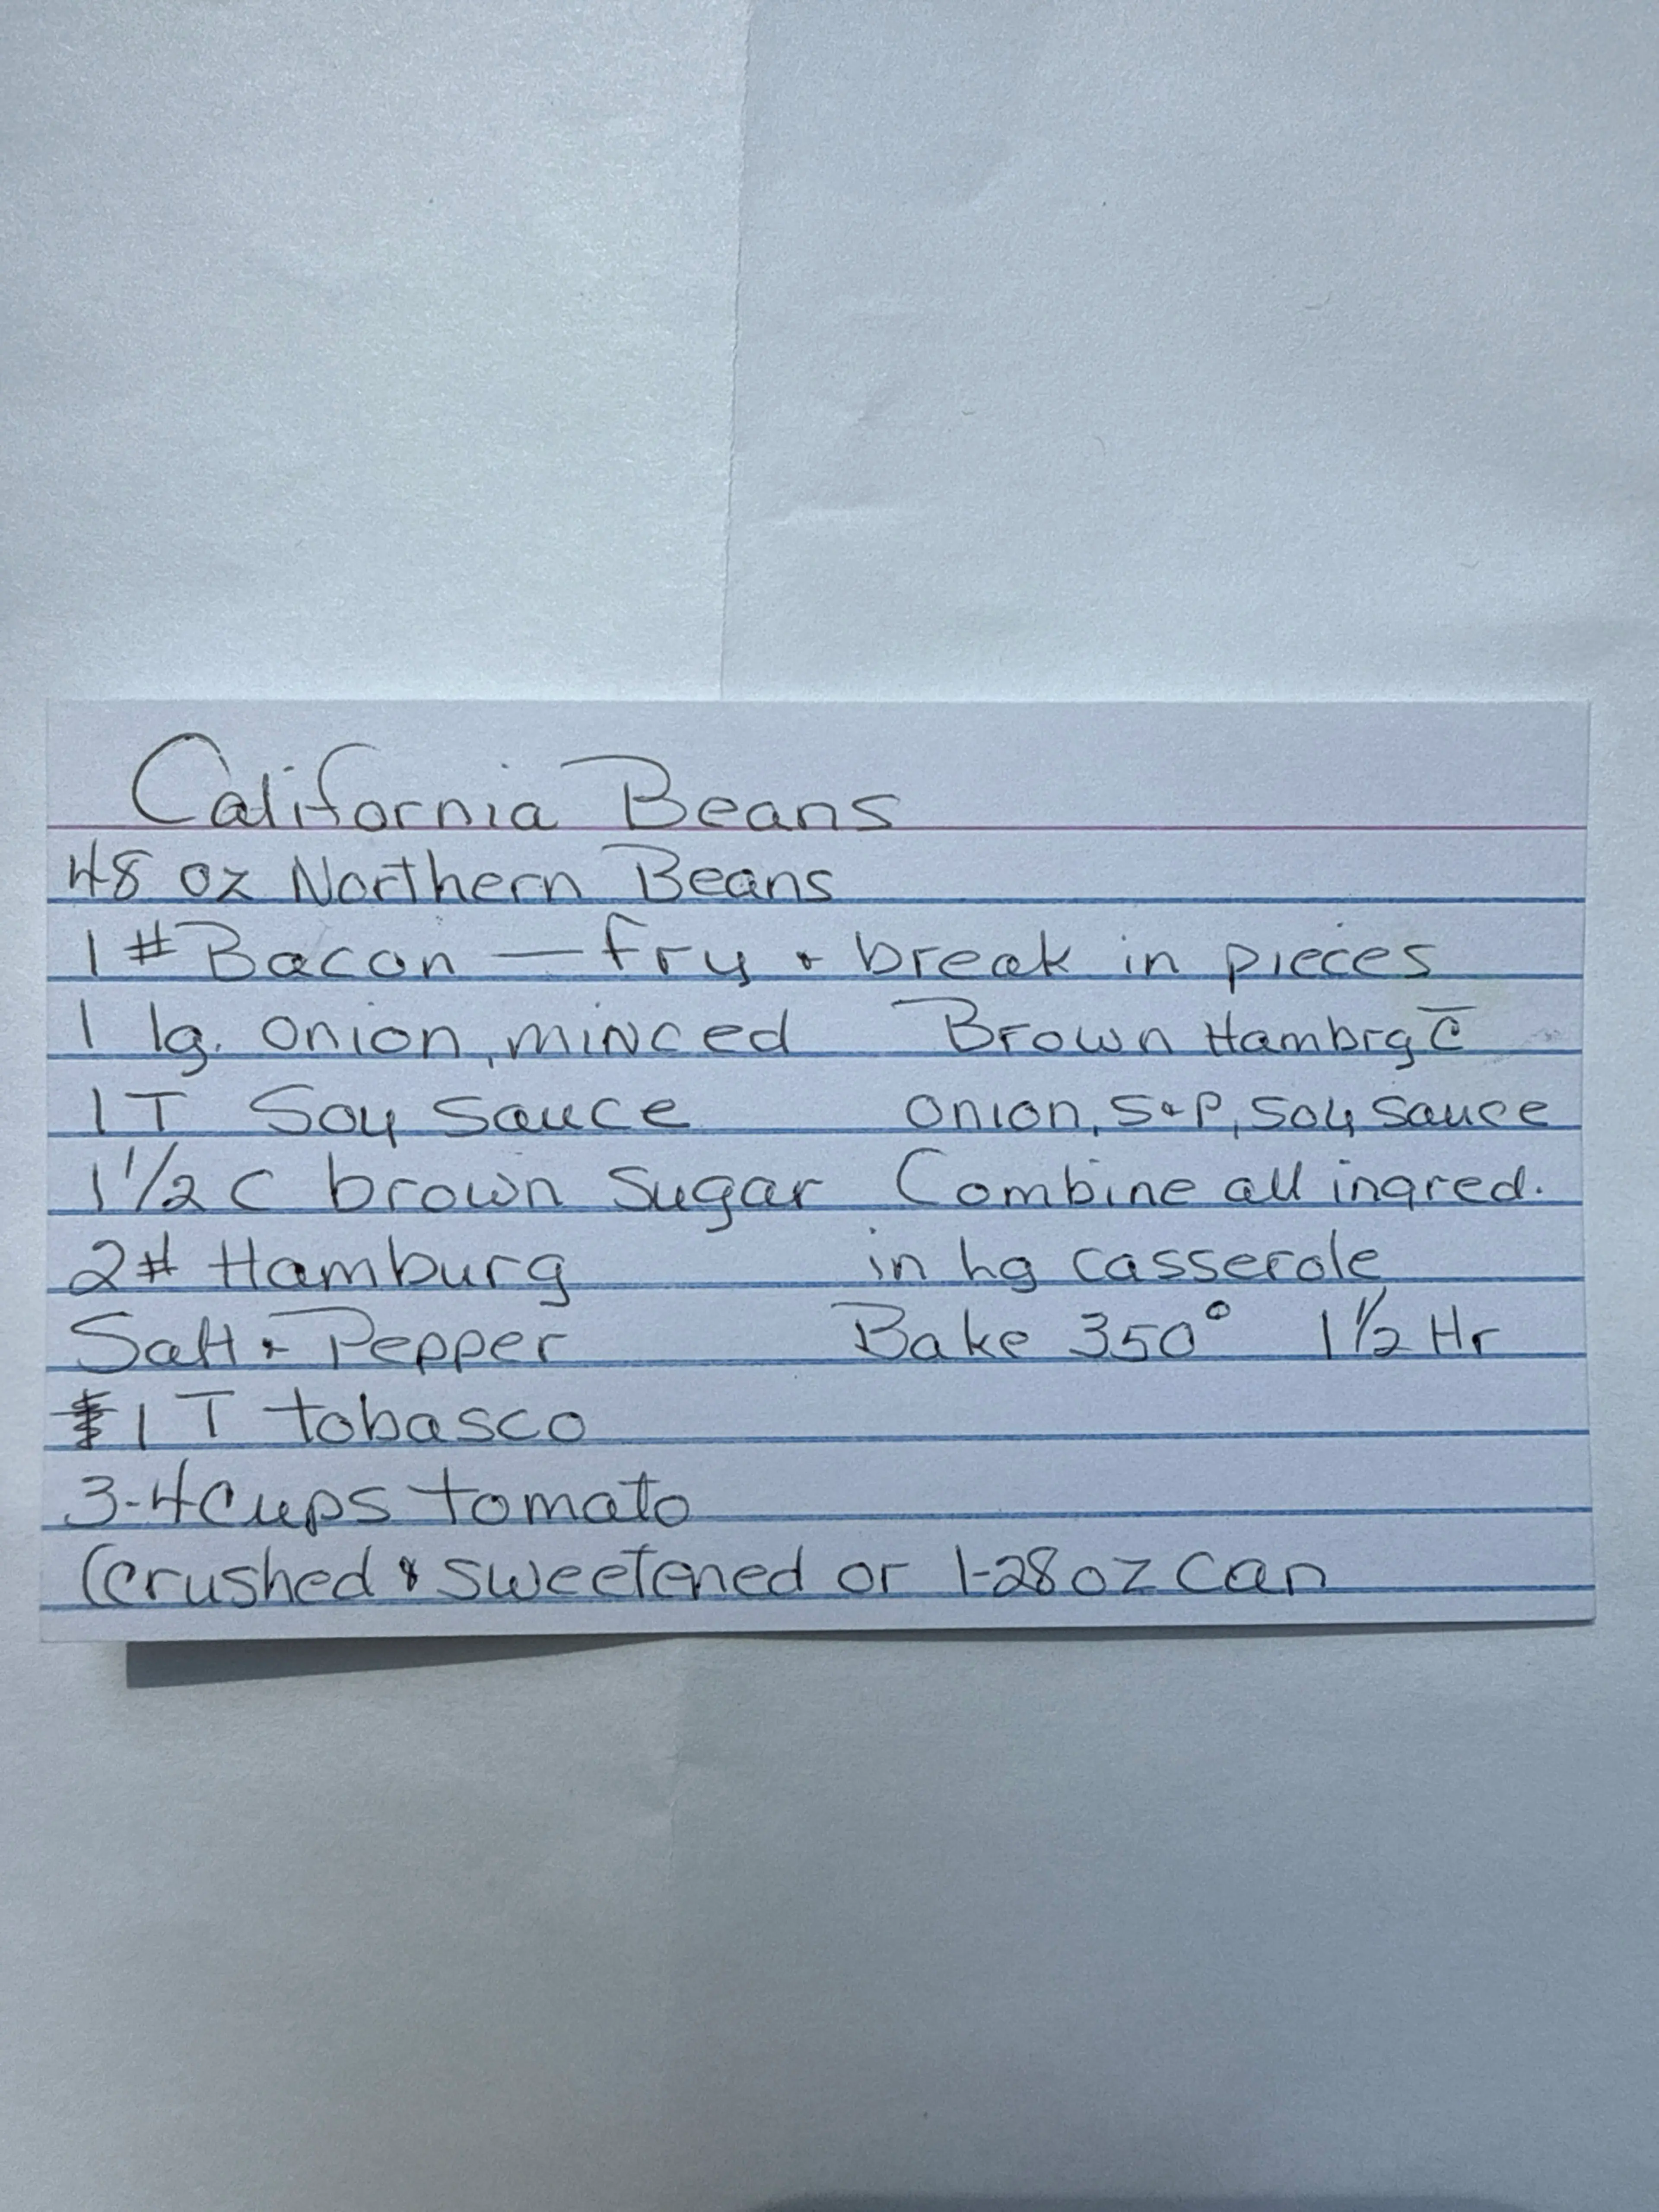 California Beans
48 oz Northern Beans
1 # Bacon — fry + break in pieces
1 lg. onion, minced
1 T Soy Sauce
1 1/2 C brown Sugar
2# Hamburg
Salt + Pepper
1 T tobasco
3-4 Cups tomato
(crushed & sweetened or 1-28 oz can
Brown Hambrg c̄
onion, S+P, soy sauce
Combine all ingred.
in lg casserole
Bake 350° 1 1/2 Hr